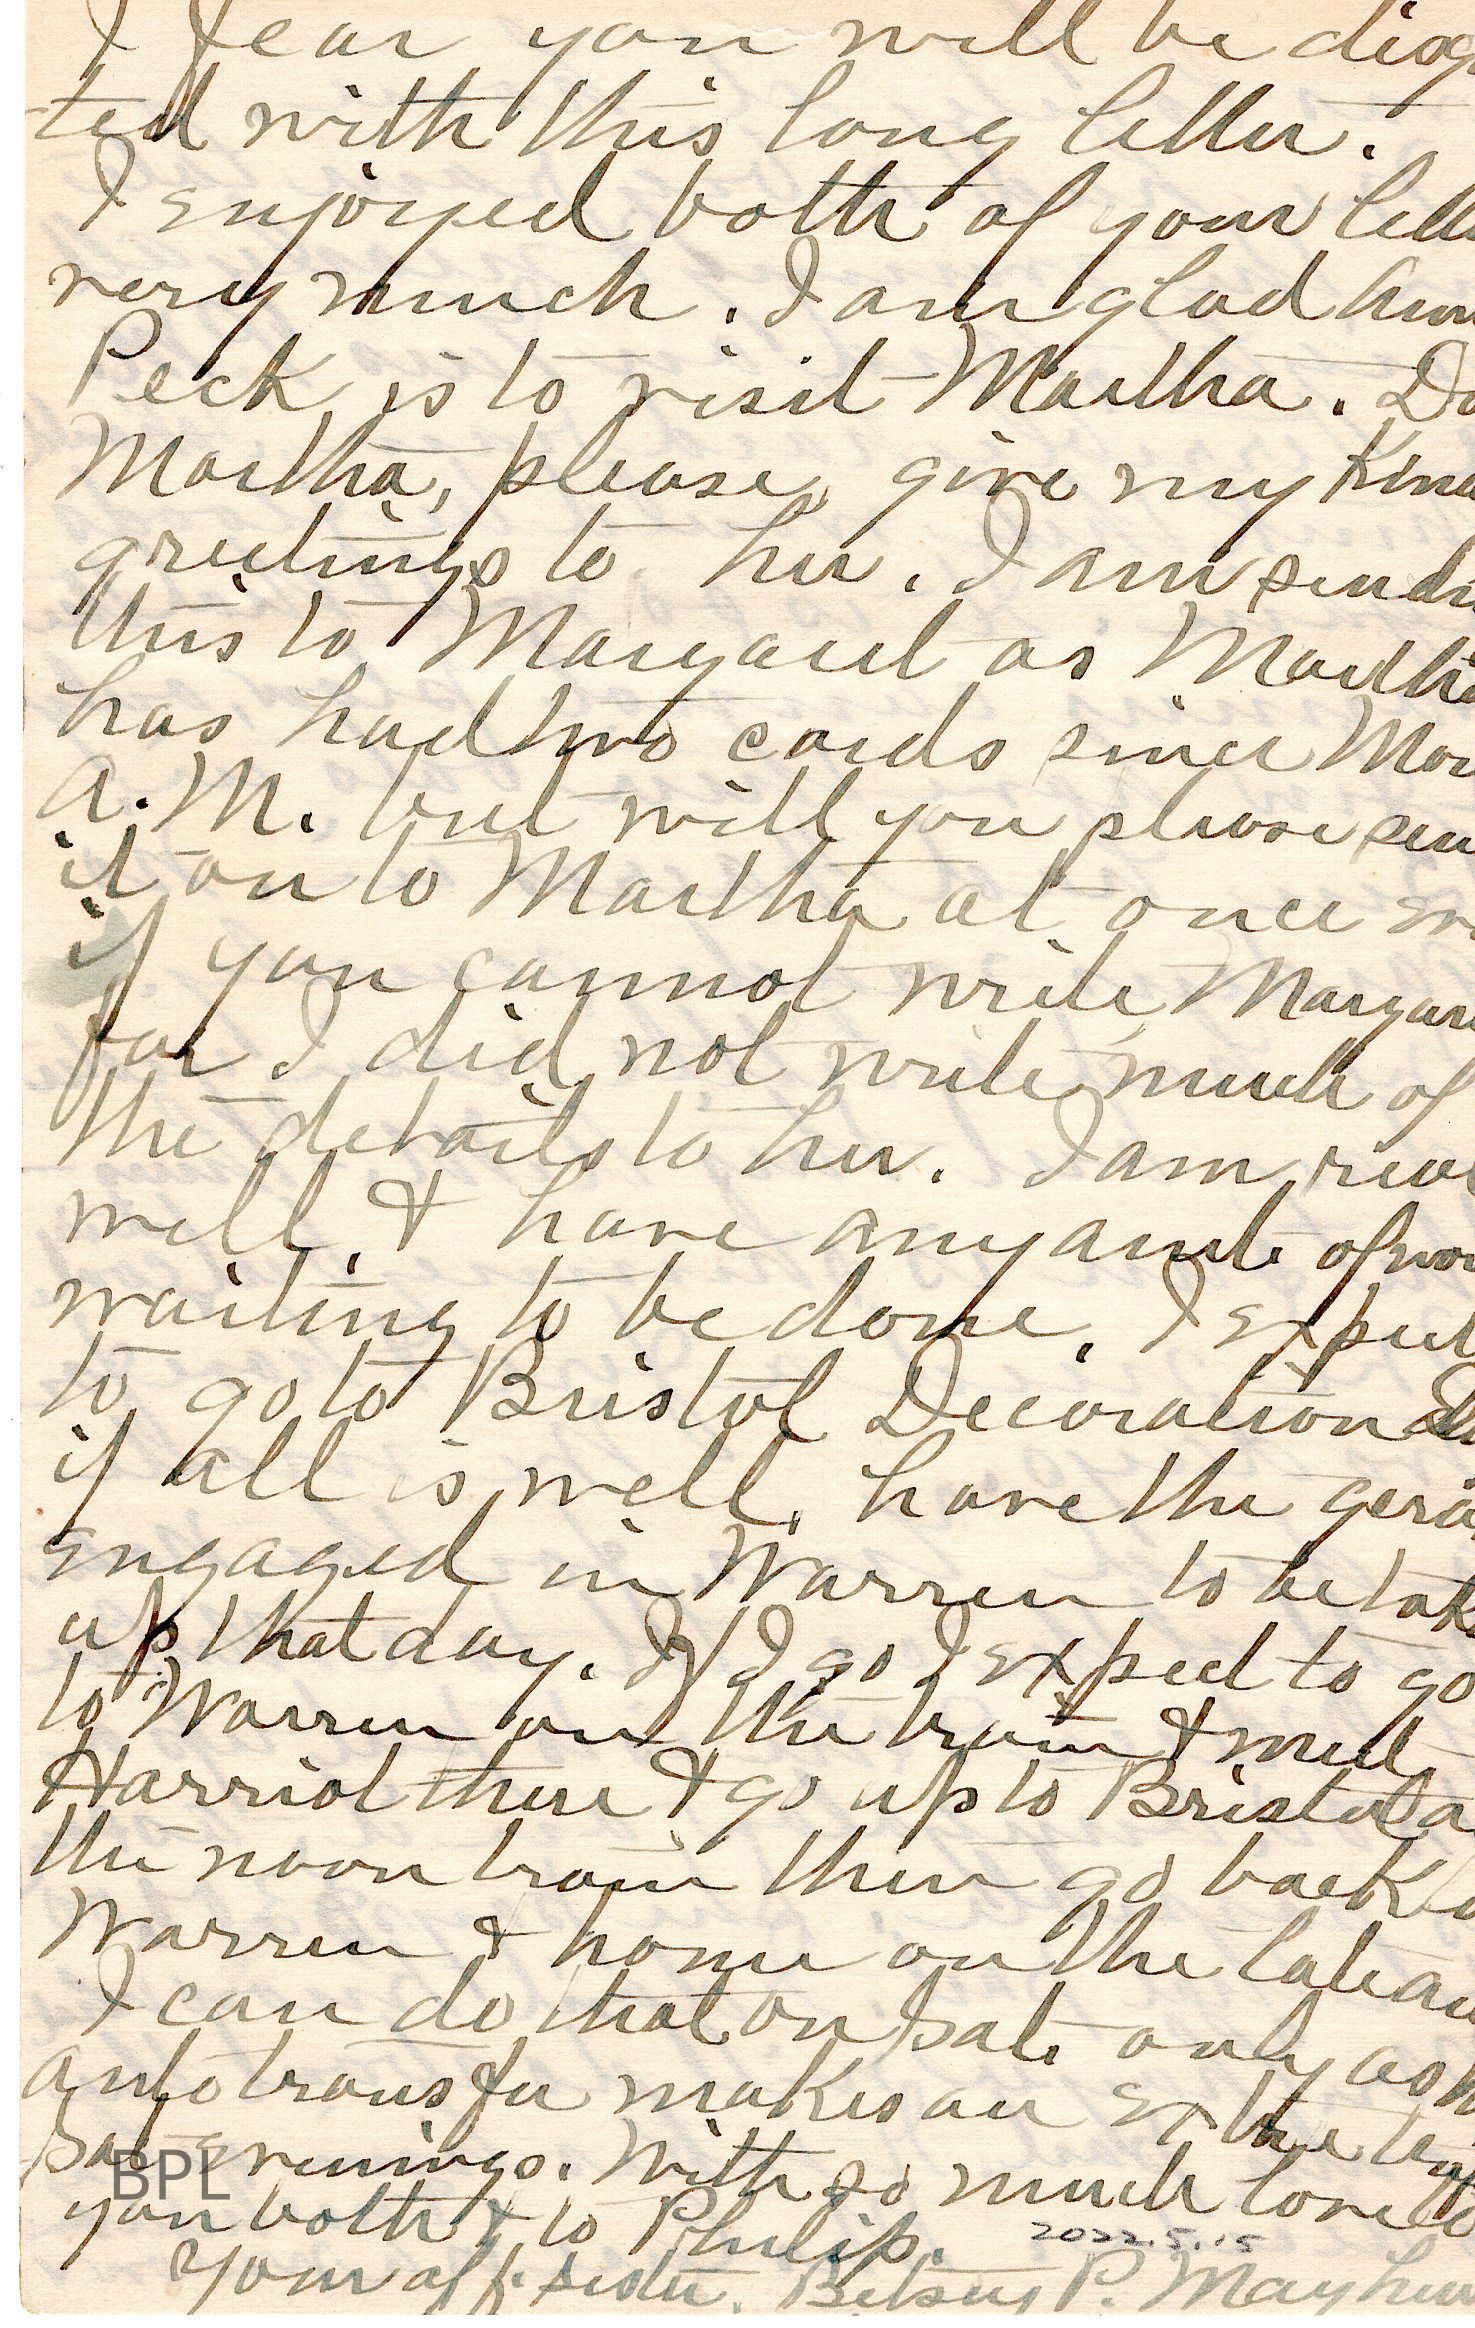 I fear you will be disg
ted with this long letter.
I enjoyed both of your lett
very much. I am glad
Peck is to visit Martha. Do
Martha, please, give my kind
greetings to her. I am sendi
this to Margaret as Martha
has had two cards since Mon
A.M. but will you please sen
it on to Martha at once
if you cannot write, Margare
for I did not write much of
the details to her. I am
well, & have any amt. of wor
waiting to be done. I expect
to go to Bristol Decoration D
if all is well, have the gera
engaged in Warren to be take
up that day. If I go I expect to go
to Warren on the train & meet
Harriot there & go up to Bristol a
the noon train then go back
Warren & home on the late
I can do that on Sat. only as
auto transfer makes an extra
Sat evenings. With so much love to
you both & to Philip.
Your aff. sister. Betsey P. Mayhew
BPL
2022.5.15